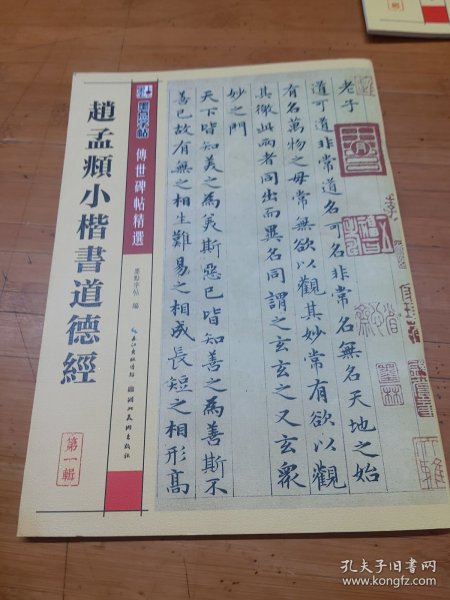 趙孟頫小楷書道德經
第一輯
墨點字帖
傳世碑帖精選
墨點字帖 編
長江出版傳媒
湖北美術出版社
老子
道可道非常道名可名非常名無名天地之始
有名萬物之母常無欲以觀其妙常有欲以觀
其徼此兩者同出而異名同謂之玄玄之又玄衆
妙之門
天下皆知美之為美斯惡已皆知善之為善斯不
善已故有無之相生難易之相成長短之相形高
孔夫子旧书网
www.kongfz.com